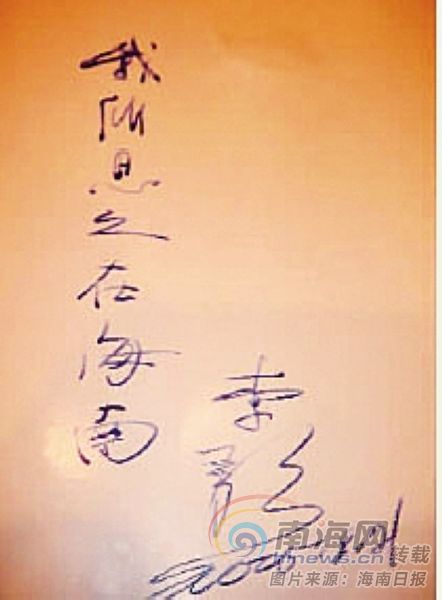 我所思之在海南
李
南海网
www.hinews.cn 转载
图片来源：海南日报